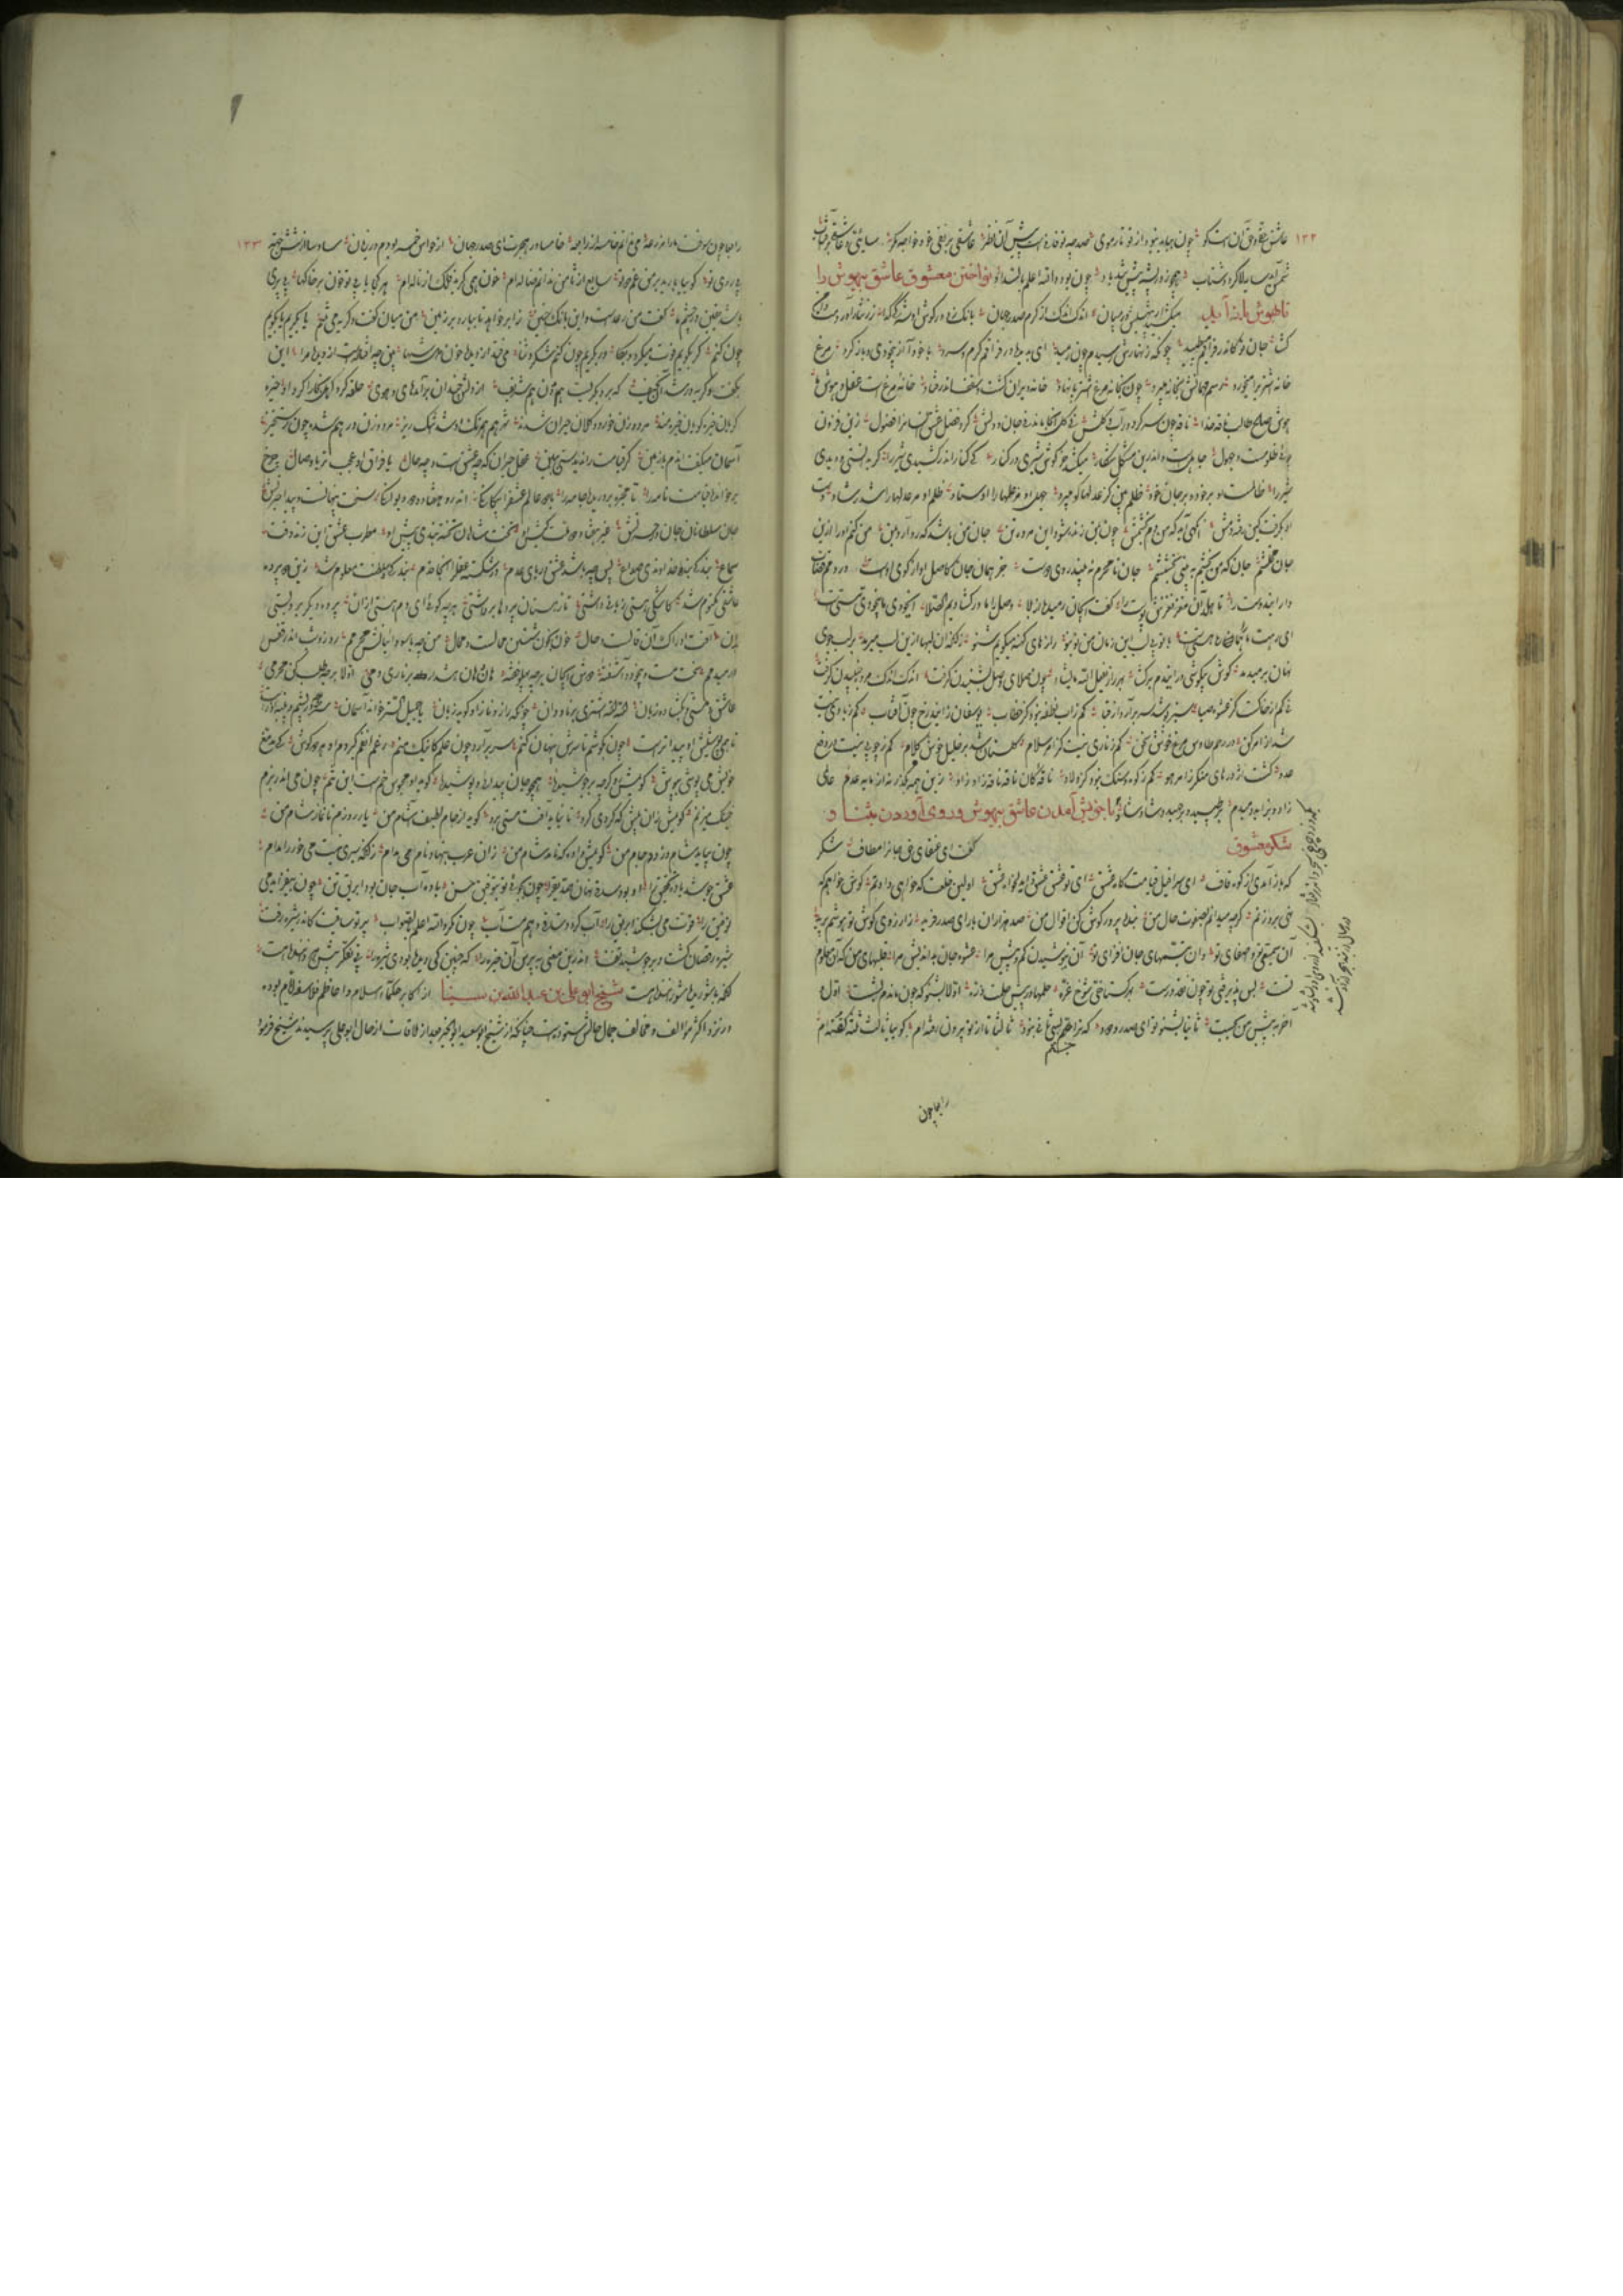 ۱۲۲
عاشق حقی و حق آن است کو چون بیاید نبود از تو تار موی صد چو تو فانی است پیش آن نظر عاشقی بر نفی خود خواجه مگر سایه‌ئی و عاشقی بر آفتاب
شمس آید سایه لا گردد شتاب
نواختن معشوق عاشق بیهوش را
تا بهوش باز آید
میکشید از بیهشی‌اش در بیان اندک اندک از کرم صدر جهان بانک زد در گوش او شه کای گدا زر نثار آوردمت دامن
گشا جان تو کاندر فراقم می‌طپید چونکه زنهارش رسیدم چون رمید ای بدیده در فراقم گرم و سرد با خود آ از بیخودی و باز گرد مرغ
خانه اشتری را بیخرد رسم مهمانش بخانه میبرد چون بخانه مرغ اشتر پا نهاد خانه ویران گشت و سقف اندر فتاد خانه مرغ است عقل و هوش ما
هوش صالح طالب ناقه خدا ناقه چون سر کرد در آب و گلش نی گل آنجا ماند نی جان و دلش کرد فضل عشق انسان را فضول زین فزون
جوئی ظلومست و جهول جاهلست و اندرین مشکل شکار میکشد خرگوش شیری در کنار کی کنار اندر کشیدی شیر را گر بدانستی و دیدی
شیر را ظالمست او بر خود و بر جان خود ظلم بین کز عدلها گو میبرد جهل او مر علمها را اوستاد ظلم او مر عدلها را شد رشاد دست
او بگرفت کین رفته دمش آنگهی آید که من دم بخشمش چون بمن زنده شود این مرده تن جان من باشد که رو آرد بمن من کنم او را ازین
جان محتشم جان که من بخشم ببیند بخششم جان نامحرم نبیند روی دوست جز همان جان کاصل او از کوی اوست در دمم قصاب
وار این دوست را تا هلد آن مغز نغزش پوست را گفت ای جان رمیده از بلا وصل ما را در گشادیم الصلا ای خود ما بیخودی و مستیت
ای ز هست ما هماره هستیت با تو بی لب این زمان من نو بنو رازهای کهنه میگویم شنو زانکه آن لبها ازین لب میرمد بر لب جوی
نهان بر میدمد گوش بی گوشی درین دم بر گشا بهر راز یفعل الله ما یشا چون صلای وصل بشنیدن گرفت اندک اندک مرده جنبیدن گرفت
نی کم از خاکست کز عشوه صبا سبز پوشد سر برآرد از فنا کم ز آب نطفه نبود کز خطاب یوسفان زایند رخ چون آفتاب کم ز بادی نیست
شد از امر کن در رحم طاوس و مرغ خوش سخن کم ز ناری نیست کز امر سلام گلستان شد بر خلیل خوش کلام کم ز چوبی نیست در دفع
عدو گشت اژدرهای منکر ز امر هو کم ز کوه سنگ نبود کز ولاد ناقه کان ناقه ناقه زاد زاد زین همه بگذر نه آن مایه عدم عالمی
زاد و بزاید دمبدم بر طپید و بر جهید و شاد شاد
با خویش آمدن عاشق بیهوش و روی آوردن بثنا و
شکر معشوق
گفت ای عنقای حق جان را مطاف شکر
که باز آمدی از کوه قاف ای سرافیل قیامت گاه عشق ای تو عشق عشق و ای دلخواه عشق اولین خلعت که خواهی دادنم گوش خواهم که
نهی بر روزنم گرچه میدانی بصفوت حال من بنده پرور گوش کن اقوال من صد هزاران بار ای صدر فرید ز آرزوی گوش تو هوشم پرید
آن سمیعی تو و اصغای تو وان تبسمهای جان افزای تو آن نیوشیدن کم و بیش مرا عشوه جان بد اندیش مرا قلبهای من که آن معلوم
تست بس پذیرفتی تو چون نقد درست بهر گستاخی شوخ غره حلمها در پیش حلمت ذره اولا بشنو که چون ماندم ز شست اول و
آخر ز پیش من بجست ثانیا بشنو تو ای صدر ودود که بسی جستم ترا ثانی نبود ثالثا تا از تو بیرون رفته‌ام گوییا ثالث ثلثه گفته‌ام
رابعا چون
۱۲۳
رابعا چون سوخت ما را مزرعه می ندانم خامسه از رابعه
پر دری تو گوییا بارید بر من
باشد یقین در چشم ما گفت من رعدست و این بانگ و حنین ز ابر خواهد تا ببارد بر زمین من میان گفت و گریه می‌تنم یا بگریم یا بگویم
چون کنم گر بگویم فوت میگردد بکا ور بگریم چون کنم شکر و ثنا می‌فتد از دیده خون دل شها بین چه افتادست از دیده مرا این
بگفت و گریه در شد آن نحیف که برو بگریست هم دون هم شریف از دلش چندان برآمد های و هوی حلقه کرد اهل بخارا گرد اوی خیره
گویان خیره گریان خیره خند مرد و زن خورد و کلان حیران شدند شهر هم همرنگ او شد اشک ریز مرد و زن درهم شده چون رستخیز
آسمان میگفت آندم با زمین گر قیامت را ندیدستی ببین عقل حیران که چه عشق است و چه حال یا فراق او عجب تر یا وصال چرخ
بر خوانده قیامت نامه را تا مجره بر دریده جامه را با دو عالم عشق را بیگانگی اندرو هفتاد و دو دیوانگی سخت پنهانست و پیدا حیرتش
جان سلطانان جان در حسرتش غیر هفتاد و دو ملت کیش او تخت شاهان تخته بندی پیش او مطرب عشق این زند وقت
سماع بندگی بند و خداوندی صداع پس چه باشد عشق دریای عدم در شکسته عقل را آنجا قدم بندگی و سلطنت معلوم شد زین دو پرده
عاشقی مکتوم شد کاشکی هستی زبانی داشتی تا ز هستان پرده‌ها برداشتی هر چه گویی ای دم هستی از آن پرده دیگر برو بستی
بدان آفت ادراک آن قالست و حال خون بخون شستن محالست و محال من چو با سوداییانش محرمم روز و شب اندر قفس
در میدمم سخت مست و بیخود و آشفته دوش ای جان بر چه پهلو خفته هان و هان هش دار بر ناری دمی اولا بر جه طلب کن محرمی
عاشق و مستی و بگشاده زبان الله الله اشتری بر ناودان چونکه راز و ناز او گوید زبان یا جمیل الستر خواند آسمان ستر چه در پشم و پنبه آذرست
تا همی پوشیش او پیداترست چون بکوشم تا سرش پنهان کنم سر برآرد چون علم کاینک منم رغم انفم گیردم او هر دو گوش کای مدمغ
چونش می پوشی بپوش گویمش رو گرچه بر جوشیده همچو جان پیدایی و پوشیده گوید او محبوس خم است این تنم چون می اندر بزم
خنبک میزنم گویمش زان پیش که گردی گرو تا نیاید آفت مستی برو گوید از جام لطیف آشام من یار روزم تا نماز شام من
چون بیاید شام و دزدد جام من گویمش واده که نامد شام من زان عرب بنهاد نام می مدام زانکه سیری نیست می خور را مدام
عشق جوشد باده تحقیق را او بود ساقی نهان صدیق را چون بجویی تو بتوفیق حسن باده آب جان بود ابریق تن چون بیفزاید می
توفیق را قوت می بشکند ابریق را آب گردد ساقی و هم مست آب چون مگو والله اعلم بالصواب پرتو ساقیست کاندر شیره رفت
شیره بر جوشید و رقصان گشت و زفت اندرین معنی بپرس آن خیره را که چنین کی دیده بودی شیره را بی تفکر پیش هر داننده هست
آنکه با شوریده شوراننده هست
شیخ ابو علی بن عبدالله بن سینا
از اکابر حکماء اسلام و اعاظم فلاسفه ایام بوده
و در نزد اکثر مؤالف و مخالف جمال حالش ستوده است چنانکه از شیخ ابوسعید ابوالخیر بعد از ملاقات از حال ابوعلی پرسیدند شیخ فرمود